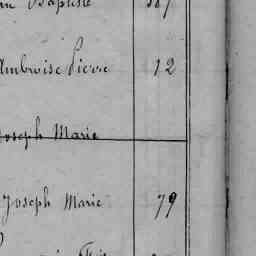 Baptiste
Ambroise Pierre 12
Joseph Marie
Joseph Marie 79